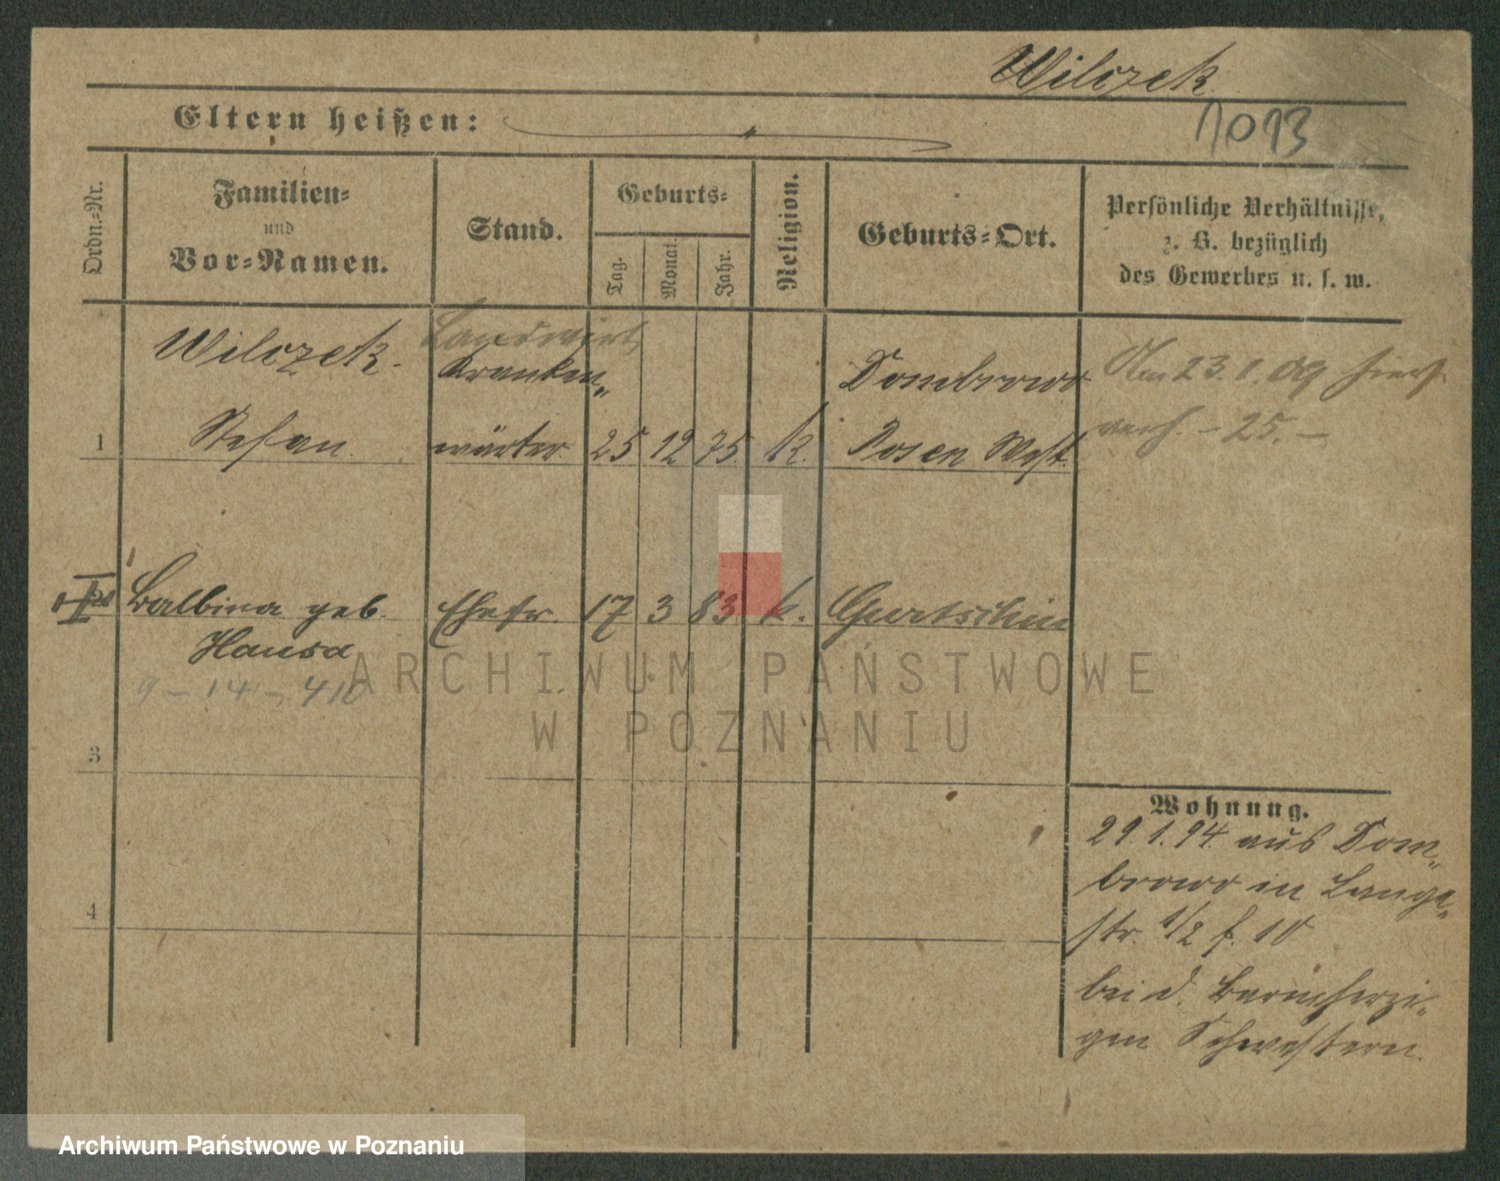 Wilczek
1013
Eltern heißen:
Ordn.-Nr.
Familien-
und
Vor-Namen.
Stand.
Geburts-
Tag.
Monat.
Jahr.
Religion.
Geburts-Ort.
Persönliche Verhältnisse,
z. B. bezüglich
des Gewerbes u. s. w.
Landwirt
Wilczek. Kranken- Dombrowo Am 23.1.09 hier
1 Stefan. wärter 25 12 75. k. Posen West verh. - 25. -
Balbina geb. Ehefr. 17 3 83 k. Gurtschin
Hausa
9 - 14 - 410
3
Wohnung.
29.1.94 aus Dom-
browo in Lange-
4
str. 1/2 f. 10
bei d. Barmherzi-
gen Schwestern.
ARCHIWUM PAŃSTWOWE
W POZNANIU
Archiwum Państwowe w Poznaniu